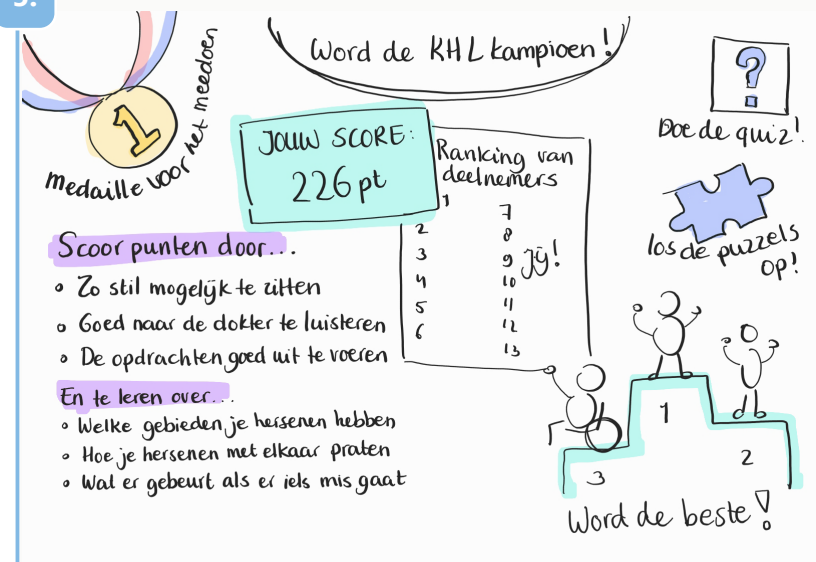 Word de KHL kampioen!
1
medaille voor het meedoen
JOUW SCORE:
226 pt
Ranking van
deelnemers
1
2
3
4
5
6
7
8
9 Jij!
10
11
12
13
Doe de quiz!
?
los de puzzels
op!
Scoor punten door...
• Zo stil mogelijk te zitten
• Goed naar de dokter te luisteren
• De opdrachten goed uit te voeren
En te leren over...
• Welke gebieden je hersenen hebben
• Hoe je hersenen met elkaar praten
• Wat er gebeurt als er iets mis gaat
1
2
3
Word de beste!